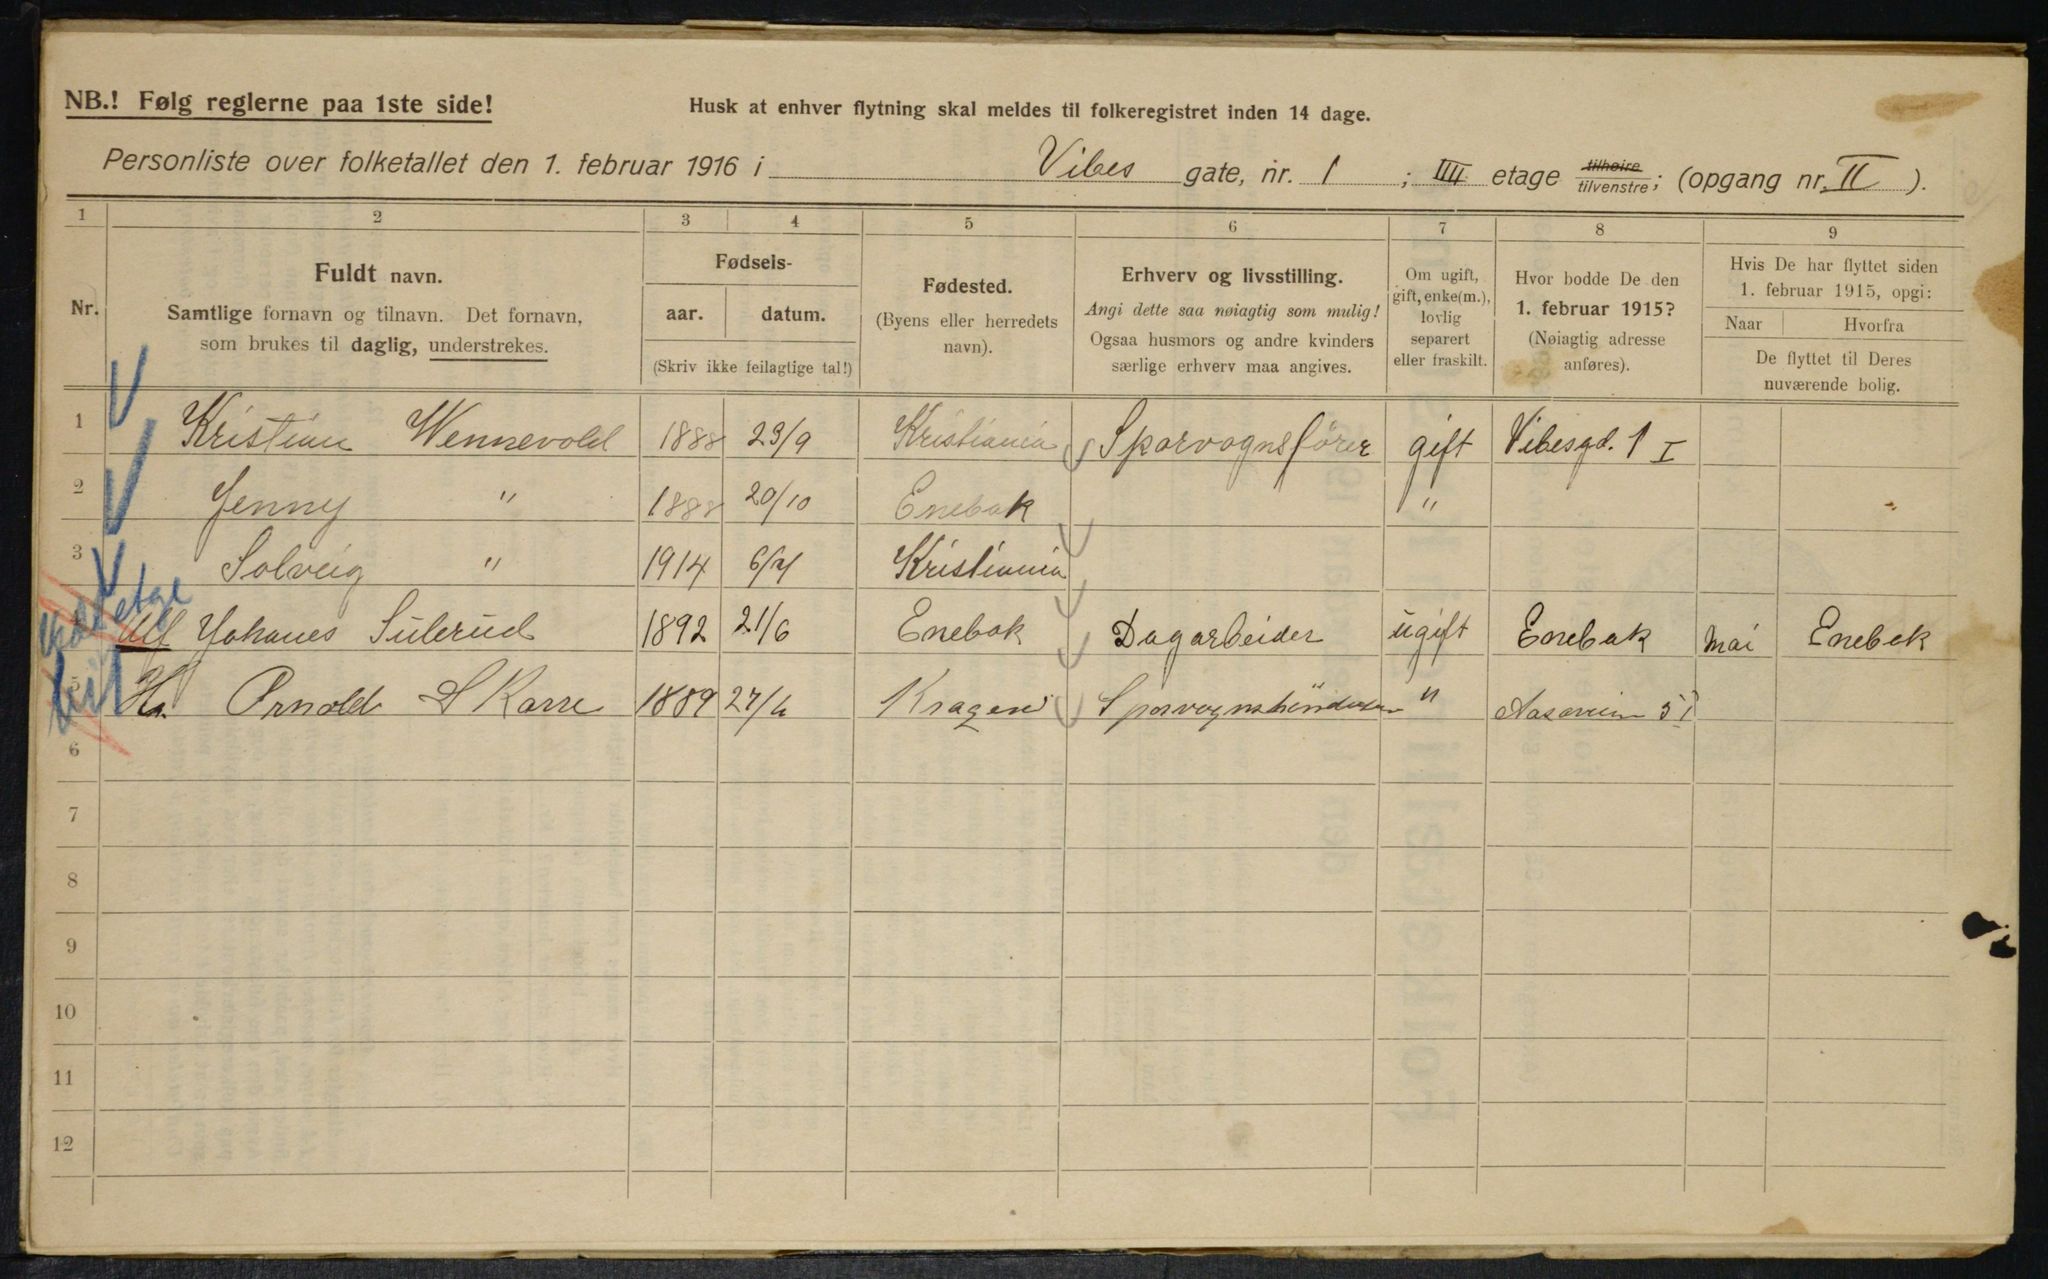 NB.! Følg reglerne paa 1ste side!
Husk at enhver flytning skal meldes til folkeregistret inden 14 dage.
Personliste over folketallet den 1. februar 1916 i Vibes gate, nr. 1 ; IIII etage tilhøire tilvenstre; (opgang nr. II ).
1 2 3 4 5 6 7 8 9
Nr.
Fuldt navn.
Samtlige fornavn og tilnavn. Det fornavn,
som brukes til daglig, understrekes.
Fødsels-
aar. datum.
(Skriv ikke feilagtige tal!)
Fødested.
(Byens eller herredets
navn).
Erhverv og livsstilling.
Angi dette saa nøiagtig som mulig!
Ogsaa husmors og andre kvinders
særlige erhverv maa angives.
Om ugift,
gift, enke(m.),
lovlig
separert
eller fraskilt.
Hvor bodde De den
1. februar 1915?
(Nøiagtig adresse
anføres).
Hvis De har flyttet siden
1. februar 1915, opgi:
Naar Hvorfra
De flyttet til Deres
nuværende bolig.
1 Kristian Wennevold 1888 23/9 Kristiania Sporvognsfører gift Vibesgd. 1 I
2 Jenny " 1888 20/10 Enebak "
3 Solveig " 1914 6/7 Kristiania
4 Alf Johanes Sulerud 1892 21/6 Enebak Dagarbeider ugift Enebak Mai Enebak
5 Hr. Arnold Skarre 1889 27/6 Kragerø "
6
7
8
9
10
11
12